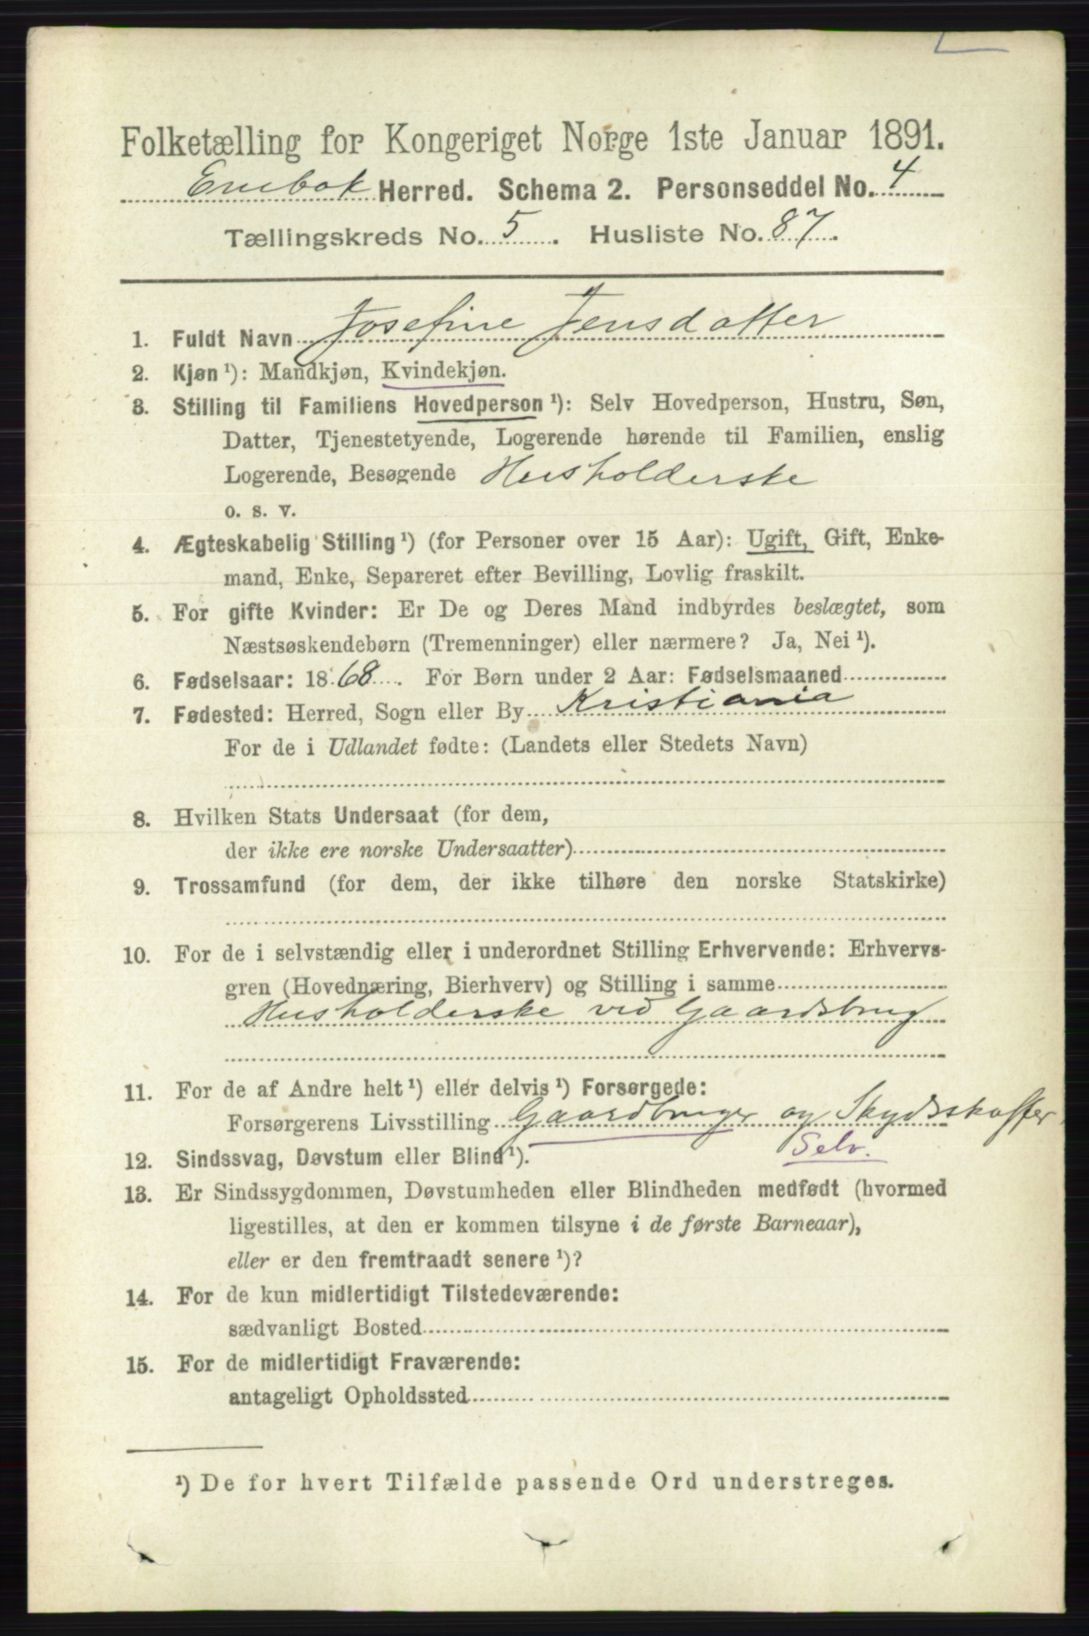 Folketælling for Kongeriget Norge 1ste Januar 1891.
Enebak Herred. Schema 2. Personseddel No. 4
Tællingskreds No. 5. Husliste No. 87.
1. Fuldt Navn Josefine Jensdatter
2. Kjøn ¹): Mandkjøn, Kvindekjøn.
3. Stilling til Familiens Hovedperson ¹): Selv Hovedperson, Hustru, Søn,
Datter, Tjenestetyende, Logerende hørende til Familien, enslig
Logerende, Besøgende Husholderske
o. s. v.
4. Ægteskabelig Stilling ¹) (for Personer over 15 Aar): Ugift, Gift, Enke-
mand, Enke, Separeret efter Bevilling, Lovlig fraskilt.
5. For gifte Kvinder: Er De og Deres Mand indbyrdes beslægtet, som
Næstsøskendebørn (Tremenninger) eller nærmere? Ja, Nei ¹).
6. Fødselsaar: 1868. For Børn under 2 Aar: Fødselsmaaned
7. Fødested: Herred, Sogn eller By Kristiania
For de i Udlandet fødte: (Landets eller Stedets Navn)
8. Hvilken Stats Undersaat (for dem,
der ikke ere norske Undersaatter)
9. Trossamfund (for dem, der ikke tilhøre den norske Statskirke)
10. For de i selvstændig eller i underordnet Stilling Erhvervende: Erhvervs-
gren (Hovednæring, Bierhverv) og Stilling i samme
Husholderske ved Gaardsbrug
11. For de af Andre helt ¹) eller delvis ¹) Forsørgede:
Forsørgerens Livsstilling Gaardbruger og Skydsskaffer
Selv.
12. Sindssvag, Døvstum eller Blind ¹).
13. Er Sindssygdommen, Døvstumheden eller Blindheden medfødt (hvormed
ligestilles, at den er kommen tilsyne i de første Barneaar),
eller er den fremtraadt senere ¹)?
14. For de kun midlertidigt Tilstedeværende:
sædvanligt Bosted
15. For de midlertidigt Fraværende:
antageligt Opholdssted
¹) De for hvert Tilfælde passende Ord understreges.